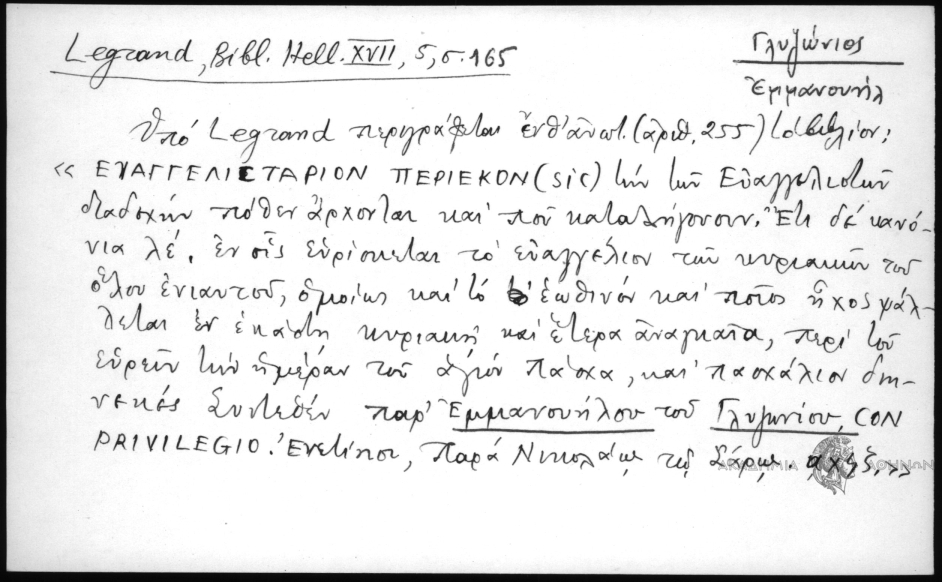 Legrand, Bibl. Hell. XVII, 5, σ. 165
Γλυζώνιος
Ἐμμανουήλ
Ὑπό Legrand περιγράφεται ἐνθ' ἀνωτ. (ἀριθ. 255) τό βιβλίον:
« ΕΥΑΓΓΕΛΙΣΤΑΡΙΟΝ ΠΕΡΙΕΚΟΝ (sic) τήν τῶν Εὐαγγελιστῶν
διαδοχήν πόθεν ἄρχονται καί ποῦ καταλήγουσιν. Ἔτι δέ κανό-
νια λέ, ἐν οἷς εὑρίσκεται τό εὐαγγέλιον τῶν κυριακῶν τοῦ
ὅλου ἐνιαυτοῦ, ὁμοίως καί τό ἑωθινόν καί ποῖος ἦχος ψάλ-
λεται ἐν ἑκάστῃ κυριακῇ καί ἕτερα ἀναγκαῖα, περί τοῦ
εὑρεῖν τήν ἡμέραν τοῦ ἁγίου Πάσχα, καί πασχάλιον διη-
νεκές Συντεθέν παρ' Ἐμμανουήλου τοῦ Γλυζωνίου, CON
PRIVILEGIO. Ἐνετίησι, Παρά Νικολάῳ τῷ Σάρῳ. αχπζ, »
ΑΚΑΔΗΜΙΑ ΑΘΗΝΩΝ